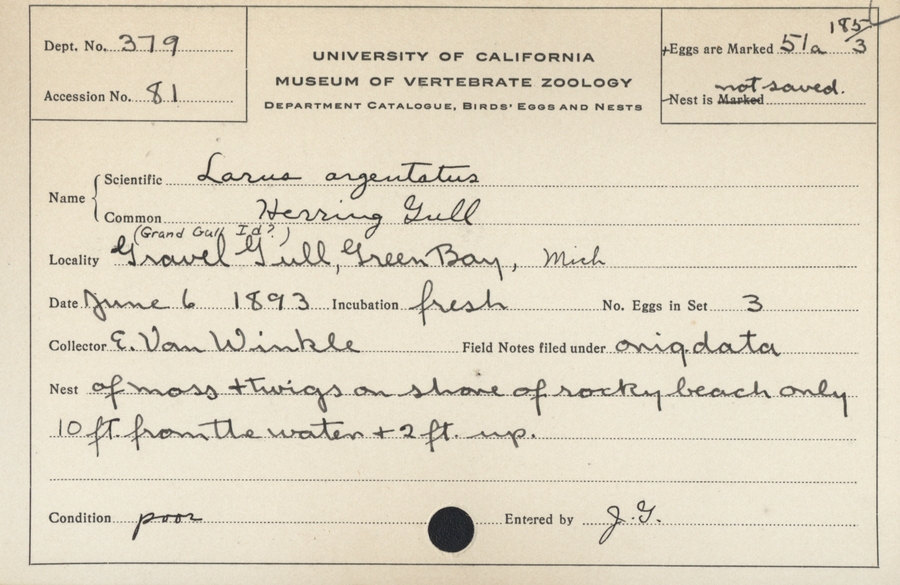 Dept. No. 379
Accession No. 81
UNIVERSITY OF CALIFORNIA
MUSEUM OF VERTEBRATE ZOOLOGY
DEPARTMENT CATALOGUE, BIRDS' EGGS AND NESTS
185
Eggs are Marked 51a 3
not saved.
Nest is Marked
Name
Scientific Larus argentatus
Common Herring Gull
(Grand Gull Id?)
Locality Gravel Gull, Green Bay, Mich
Date June 6 1893 Incubation fresh No. Eggs in Set 3
Collector E. Van Winkle Field Notes filed under orig. data
Nest of moss + twigs on shore of rocky beach only
10 ft. from the water + 2 ft. up.
Condition poor Entered by J. G.